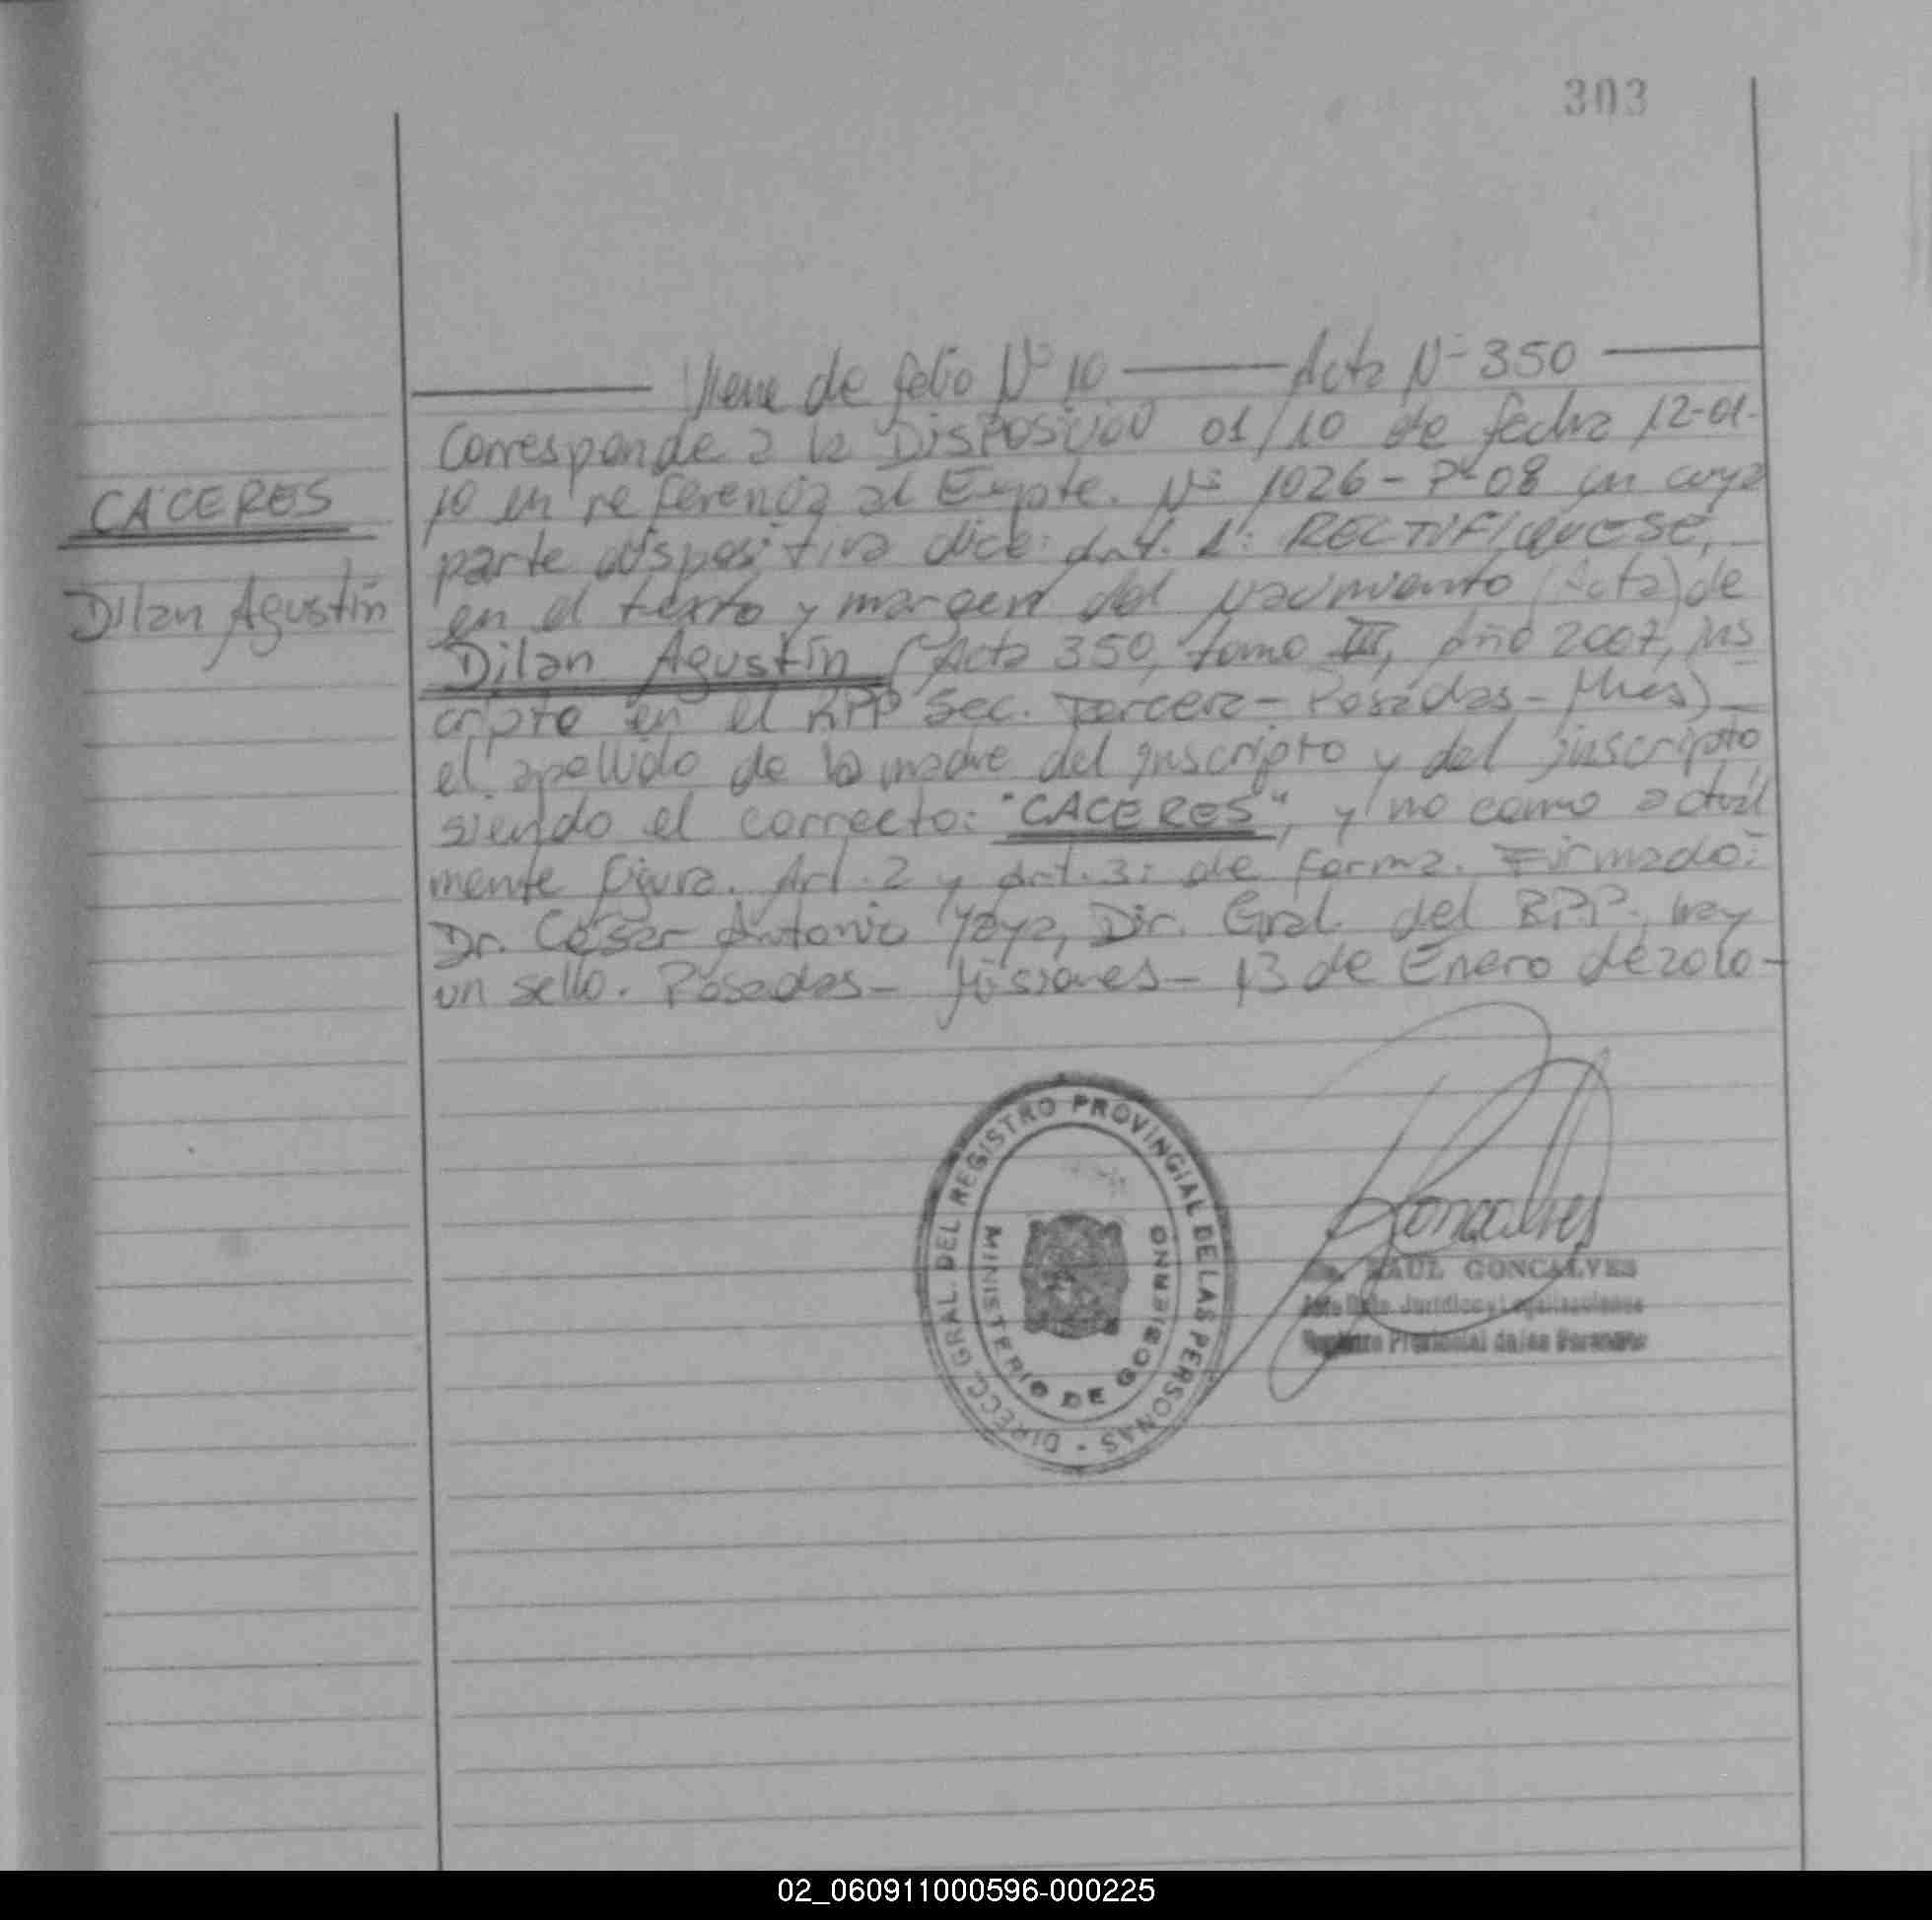 303
Viene de folio Nº 10 Acta Nº 350
Corresponde a la Disposición 01/10 de fecha 12-01-
10 en referencia al Expte. Nº 1026-P-08 en cuya
CACERES
parte dispositiva dice: Art. 1: RECTIFIQUESE,
en el texto y margen del Nacimiento (Acta) de
Dilan Agustín
Dilan Agustín (Acta 350, tomo III, Año 2007, ins
cripto en el RPP Sec. Tercera - Posadas - Mnes)
el apellido de la madre del inscripto y del inscripto
siendo el correcto: "CACERES", y no como actual
mente figura. Art. 2 y Art. 3: de forma. Firmado:
Dr. César Antonio Yaya, Dir. Gral. del RPP., hay
un sello. Posadas - Misiones - 13 de Enero de 2010 -
DIRECC. GRAL. DEL REGISTRO PROVINCIAL DE LAS PERSONAS -
MINISTERIO DE GOBIERNO
Goncalves
RAUL GONCALVES
Jefe Dpto. Jurídico y Legalizaciones
Registro Provincial de las Personas
02_060911000596-000225